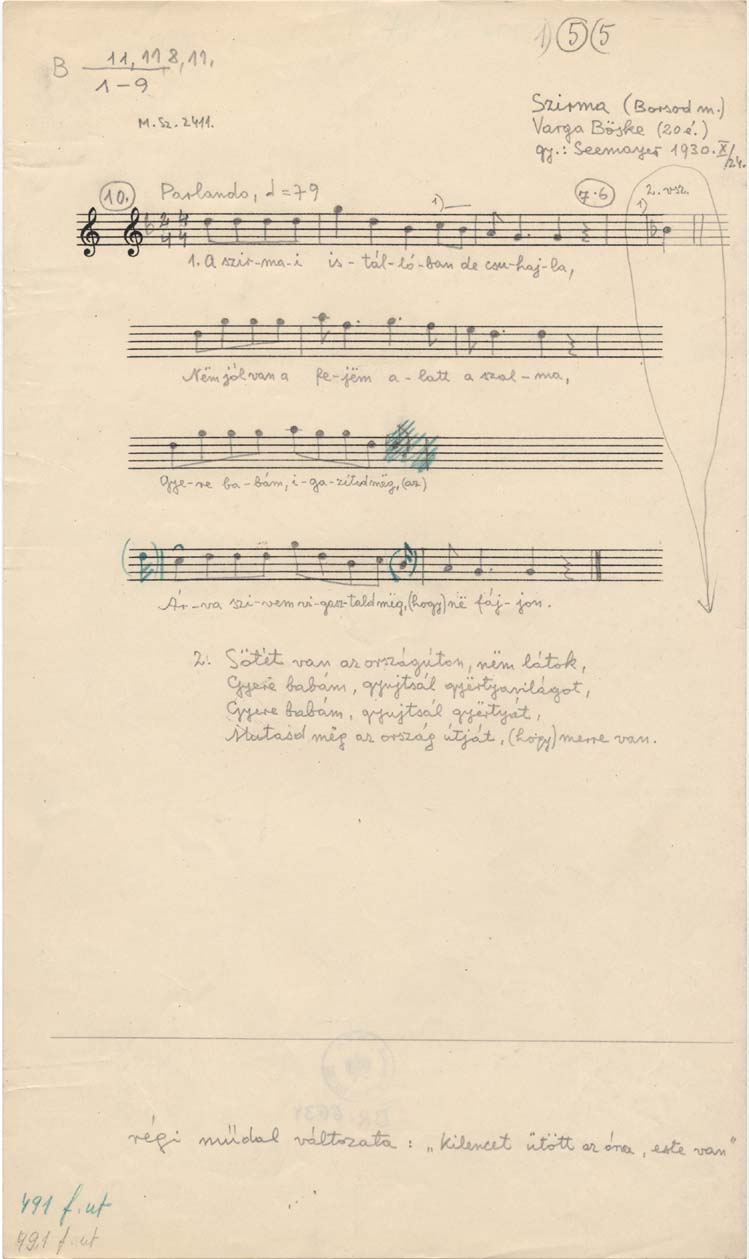 1) 5 (5
B 11, 11 8, 11,
1 - 9
M. Sz. 2411.
Szirma (Borsod m.)
Varga Böske (20 é.)
gy.: Seemayer 1930. X/24.
10. Parlando, ♩=79
7.6
2. vsz.
1)
1)
1. A szir-ma-i is-tál-ló-ban de csu-haj-la,
Nëm jól van a fe-jëm a-latt a szal-ma,
Gye-re ba-bám, i-ga-zítsd mëg, (az)
Ár-va szi-vem vi-gasz-tald mëg, (hogy) në fáj-jon.
2. Sötét van az országúton, nëm látok,
Gyere babám, gyujtsál gyërtyavilágot,
Gyere babám, gyujtsál gyërtyát,
Mutasd mëg az ország útját, (hogy) merre van.
régi müdal változata: „Kilencet ütött az óra, este van"
491 f. ut
491 f. ut